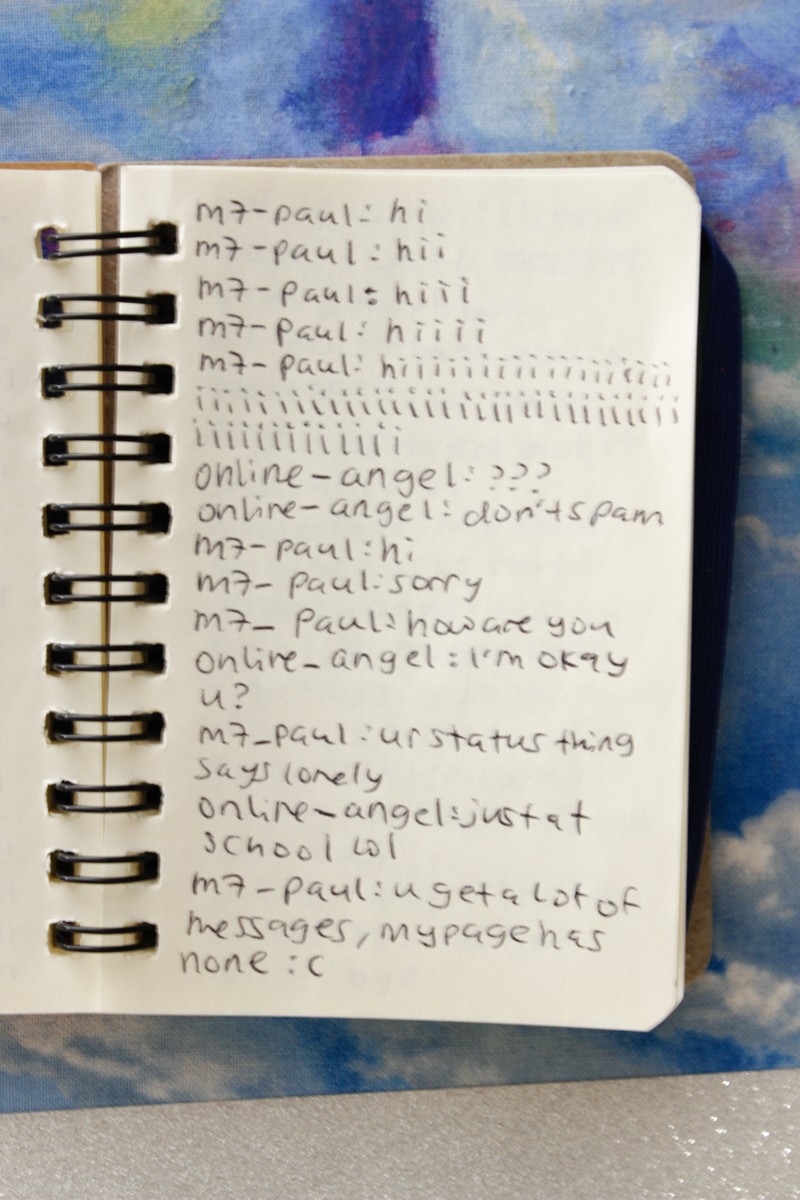 m7-paul: hi
m7-paul: hii
m7-paul: hiii
m7-paul: hiiii
m7-paul: hiiiiiiiiiiiiiiiiiii
iiiiiiiiiiiiiiiiiiiiiiiiiiiiii
iiiiiiiiiiiii
online-angel: ???
online-angel: don't spam
m7-paul: hi
m7-paul: sorry
m7_paul: how are you
online_angel: I'm okay
u?
m7_paul: ur status thing
says lonely
online-angel: just at
school lol
m7-paul: u get a lot of
messages, my page has
none :c